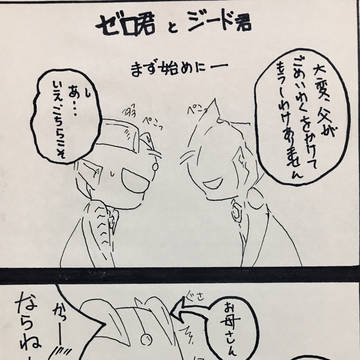 ゼロ君 と ジード君
まず始めにー
大変、父が
ごめいわくをかけて
もうしわけありません
ペこっ
ペこっ
あ…
いえこちらこそ
お母さん
ぐさ
かっー
ならね